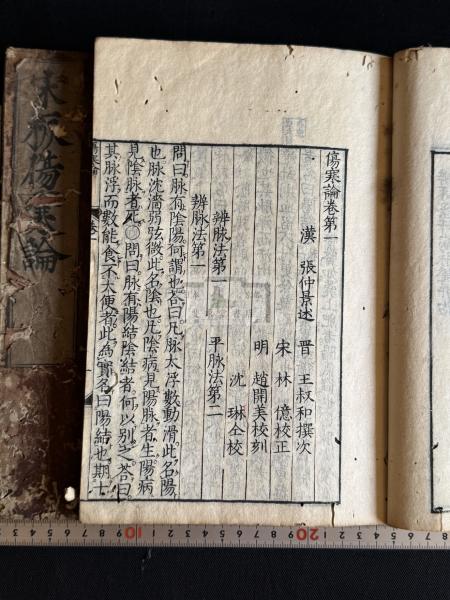 宋板傷寒論
傷寒論卷第一
漢　張仲景述　晉　王叔和撰次
宋　林　億校正
明　趙開美校刻
沈　琳仝校
辨脉法第一　平脉法第二
辨脉法第一
問曰脉有陰陽何謂也答曰凡脉大浮數動滑此名陽
也脉沈濇弱弦微此名陰也凡陰病見陽脉者生陽病
見陰脉者死○問曰脉有陽結陰結者何以別之答曰
其脉浮而數能食不大便者此為實名曰陽結也期十
傷寒論　卷一
10 20